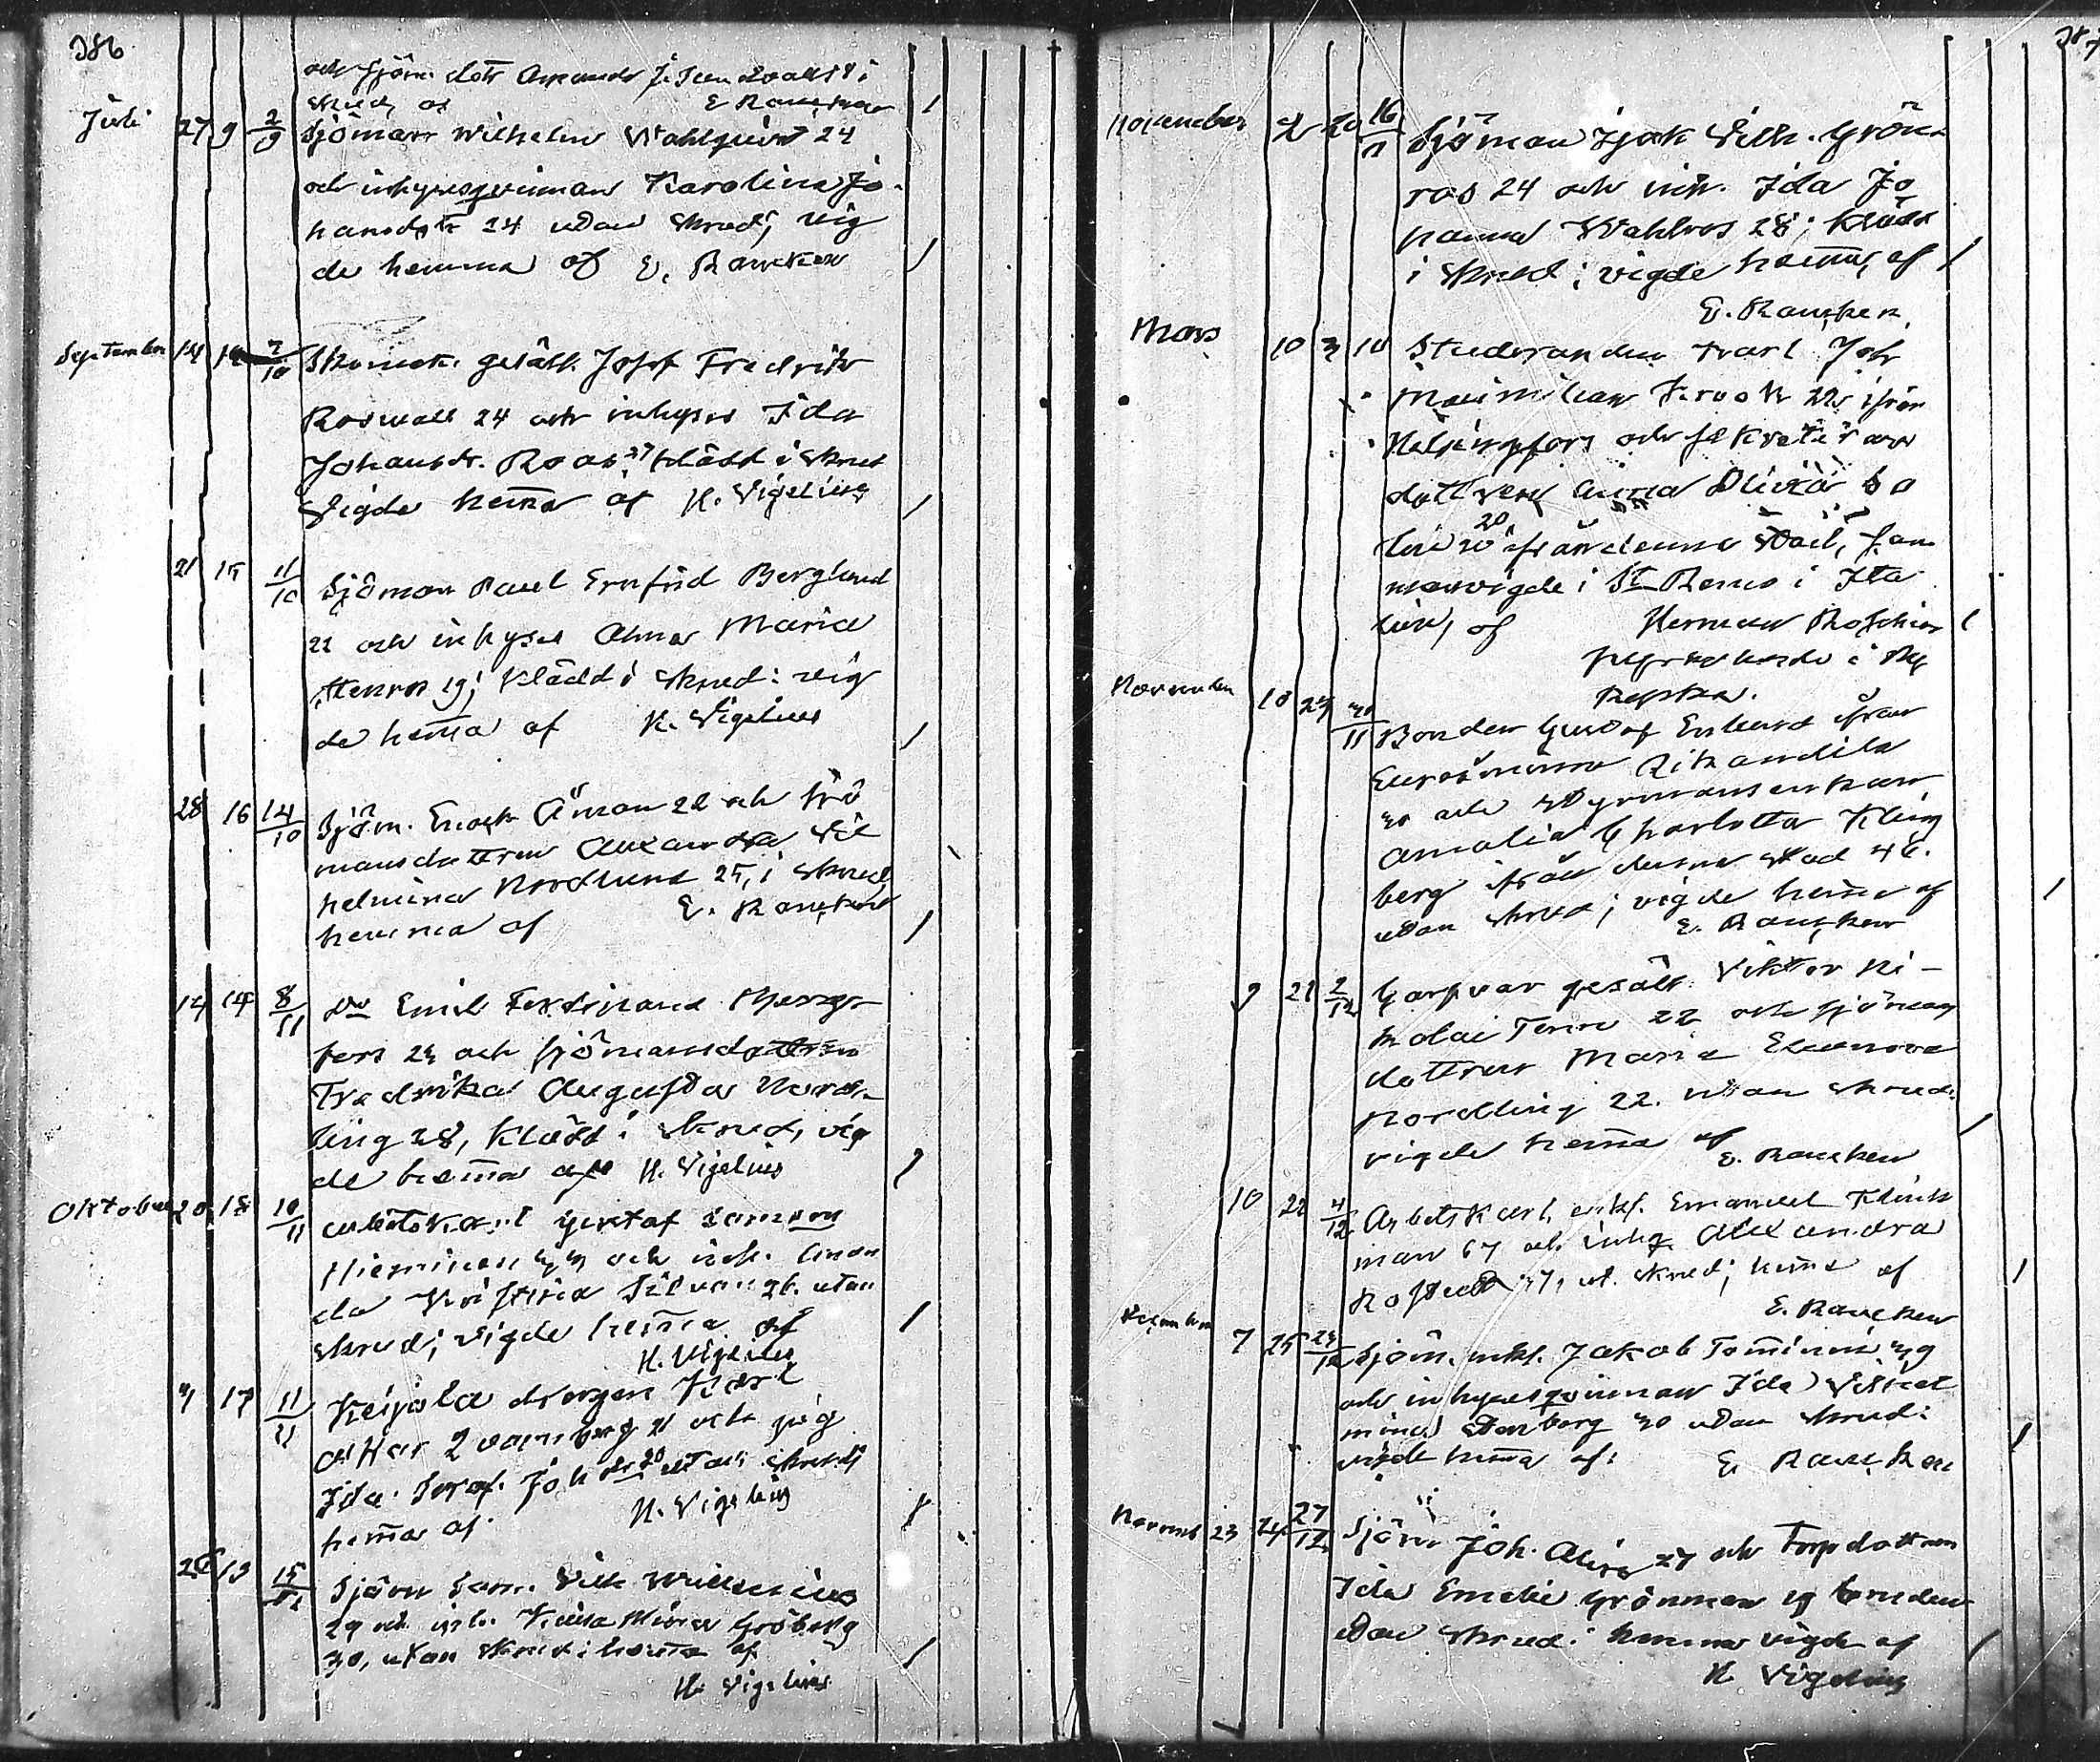 386
och sjöm. dotr i
skrud, af E Rancken
Juli 27 9 2/9 Sjöman Wilhelm Wahlquist 24
och inhysesqvinnan Karolina Jo-
hansdotr 24 utan skrud; vig
de hemma af E. Rancken
September 14 14 7/10 Skomak. gesäll. Josef Fredrik
Roswall 24 och inhyses Ida
Johansdr. Roos 27 klädd i skrud
Vigde hemma af H. Vigelius
21 15 11/10 Sjöman Paul Ernfrid Berglund
22 och inhyses Alma Maria
19; klädd i skrud: vig
de hemma af H. Vigelius
28 16 14/10 Sjöm. Enoch Åman 22 och sjö
mansdottren Alexandra Vil
helmina Nordlund 25, i skrud,
hemma af E. Rancken
14 14 8/11 do Emil Ferdinand
fors 23 och sjömansdottren
Fredrika Augusta Nord-
ling 28, klädd i skrud, vig
de hemma af H. Vigelius
Oktober 20 18 10/11 arbetskarl Gustaf
Nieminen och inh. Aman
da Kristina 26. utan
skrud; vigde hemma af
H. Vigelius
4 17 11/11 drengen Karl
Oskar Qvarnberg 21 och pig
Ida Joh dr 20 utan skrud
hemma af H. Vigelius
13 15/11 Sjöm Sam. Vilh Willenius
29 och inh. Mina Gröberg
30, utan skrud: hemma af
H. Vigelius
387
November 2 20 16/11 Sjöman Isak Vilh. Grön-
roos 24 och inh. Ida Jo
hanna Wahlroos 28; klädd
i skrud; vigde hemma, af
E. Rancken.
Mars 10 3 10 Studeranden Karl Joh
Maximilian Krook 22 ifrån
Helsingfors och sekreterare
dottren Anna Olivia
20 ifrån denna stad, sam
manvigde i St Remo i Ita
lien, af Herman
i
November 10 23 30/11 Bonden Gustaf Enlund ifrån
Euraåminne
och styrmansenkan
Amalia Charlotta Kling
berg ifrån denna stad 46.
utan skrud; vigde hemma af
E. Rancken
9 21 2/12 Garfvar gesäll Viktor Ni-
kolai 22 och sjömans
dottren Maria Eleonora
Nordling 22. utan skrud:
vigde hemma af
E. Rancken
10 22 4/12 Arbetskarl, enkl. Emanuel Klink
man 67 och inhys Alexandra
ut. skrud; hemma af
E. Rancken
December 7 25 23/12 Sjöm. enkl. Jakob Tominen 39
och inhysesqvinnan Ida Vilhel
mina 30 utan skrud:
vigde hemma af: E Rancken
Novemb 23 24 27/12 Sjöm Joh. 27 och Torpdottren
Ida Emelie Grönman 19 bruden
utan skrud: hemma vigde af
H Vigelius